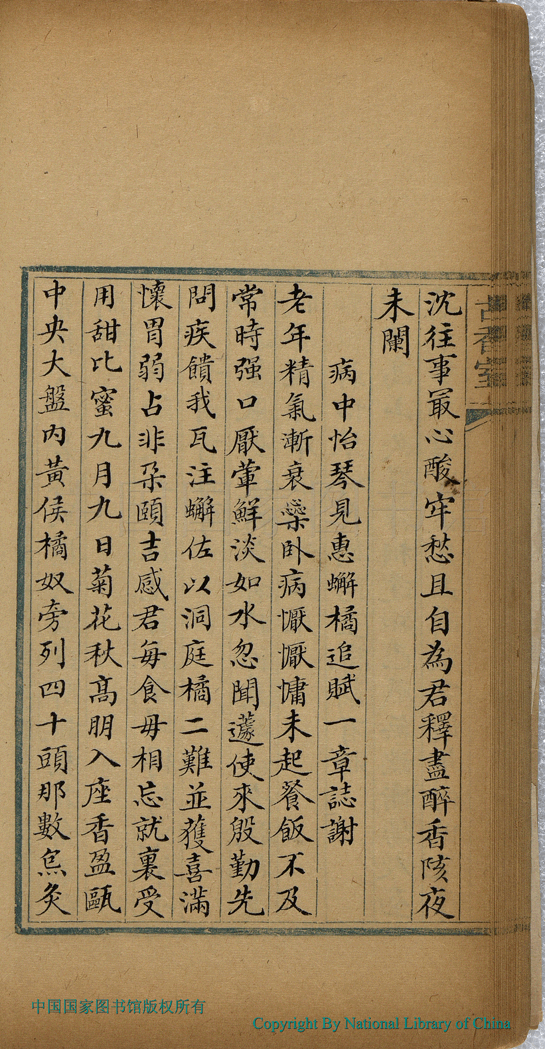 沈往事最心酸牢愁且自為君釋盡醉香陔夜
未闌
病中怡琴見惠蠏橘追賦一章誌謝
老年精氣漸衰槳臥病懨懨慵未起餐飯不及
常時强口厭葷鮮淡如水忽聞遽使來殷勤先
問疾饋我瓦注蠏佐以洞庭橘二難並獲喜滿
懷胃弱占非朶頤吉感君每食毋相忘就裏受
用甜比蜜九月九日菊花秋高朋入座香盈甌
中央大盤內黃侯橘奴旁列四十頭那數炰炙
古香室
中国国家图书馆版权所有
Copyright By National Library of China